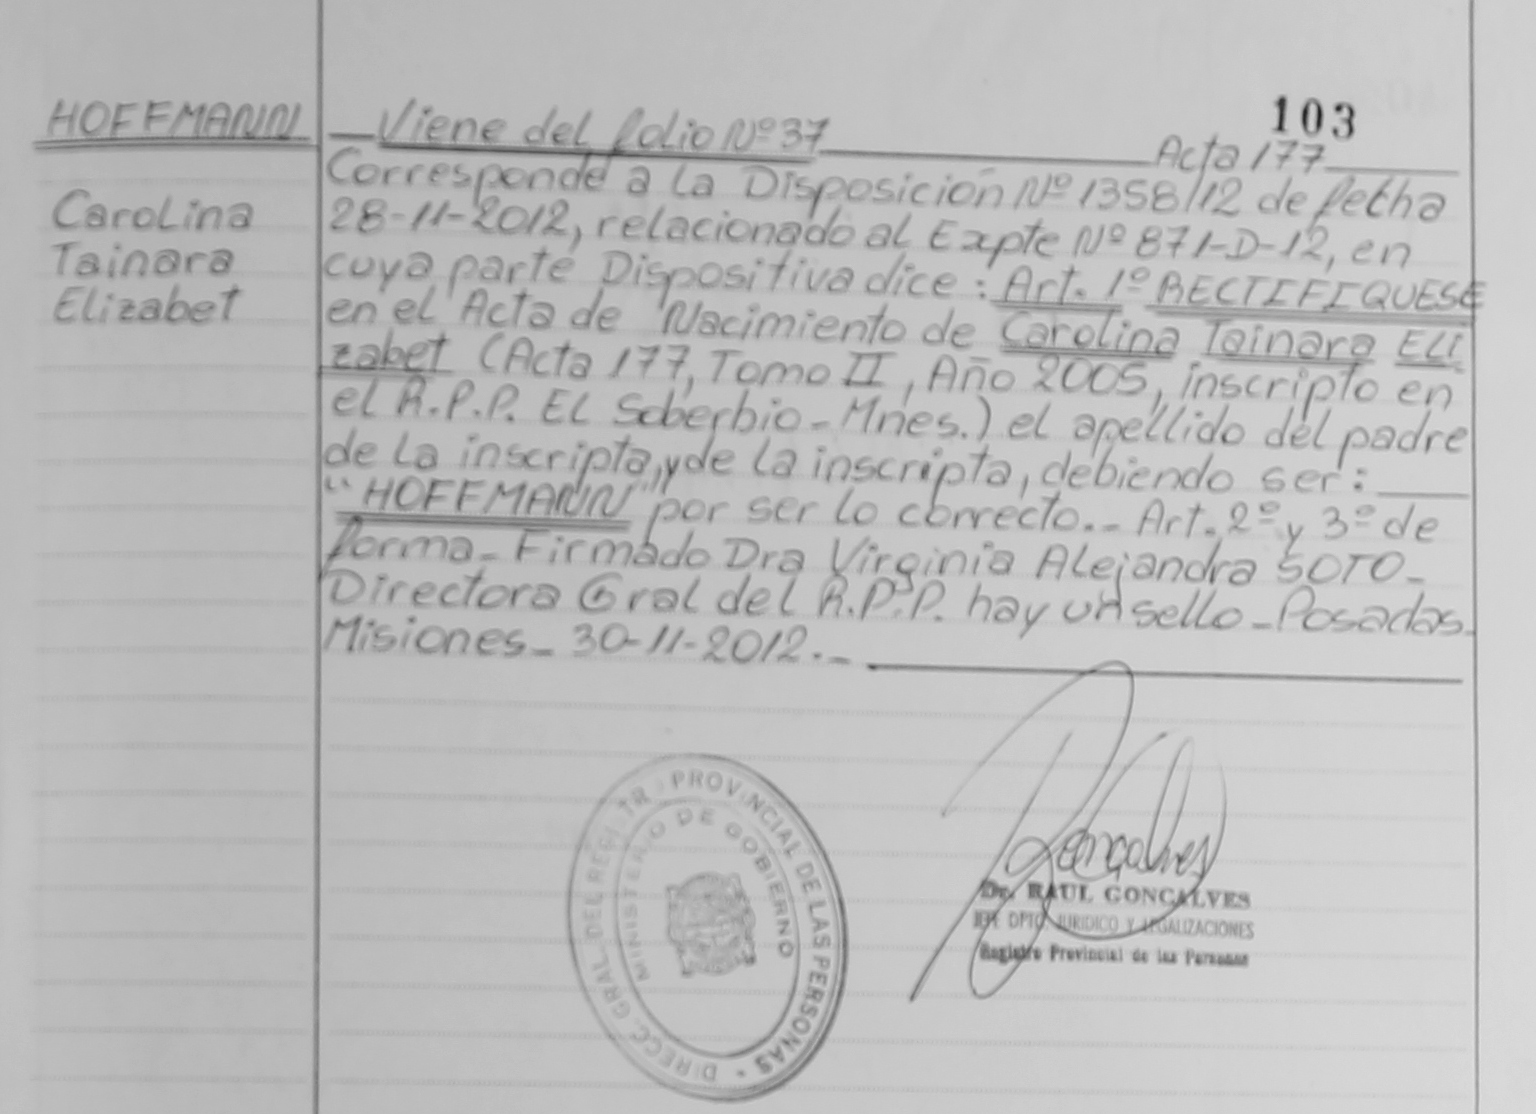 103
HOFFMANN
Carolina
Tainara
Elizabet
Viene del folio Nº 37 Acta 177
Corresponde a la Disposición Nº 1358/12 de fecha
28-11-2012, relacionado al Expte Nº 871-D-12, en
cuya parte Dispositiva dice: Art. 1º RECTIFIQUESE
en el Acta de Nacimiento de Carolina Tainara Eli
zabet (Acta 177, Tomo II, Año 2005, inscripto en
el R.P.P. El Soberbio - Mnes.) el apellido del padre
de la inscripta, y de la inscripta, debiendo ser:
"HOFFMANN" por ser lo correcto.- Art. 2º y 3º de
forma - Firmado Dra Virginia Alejandra SOTO -
Directora Gral del R.P.P. hay un sello - Posadas -
Misiones - 30-11-2012.-
DIRECC. GRAL. DEL REGISTR PROVINCIAL DE LAS PERSONAS
MINISTERIO DE GOBIERNO
Goncalves
Dr. RAUL GONCALVES
JEFE DPTO. JURIDICO Y LEGALIZACIONES
Registro Provincial de las Personas